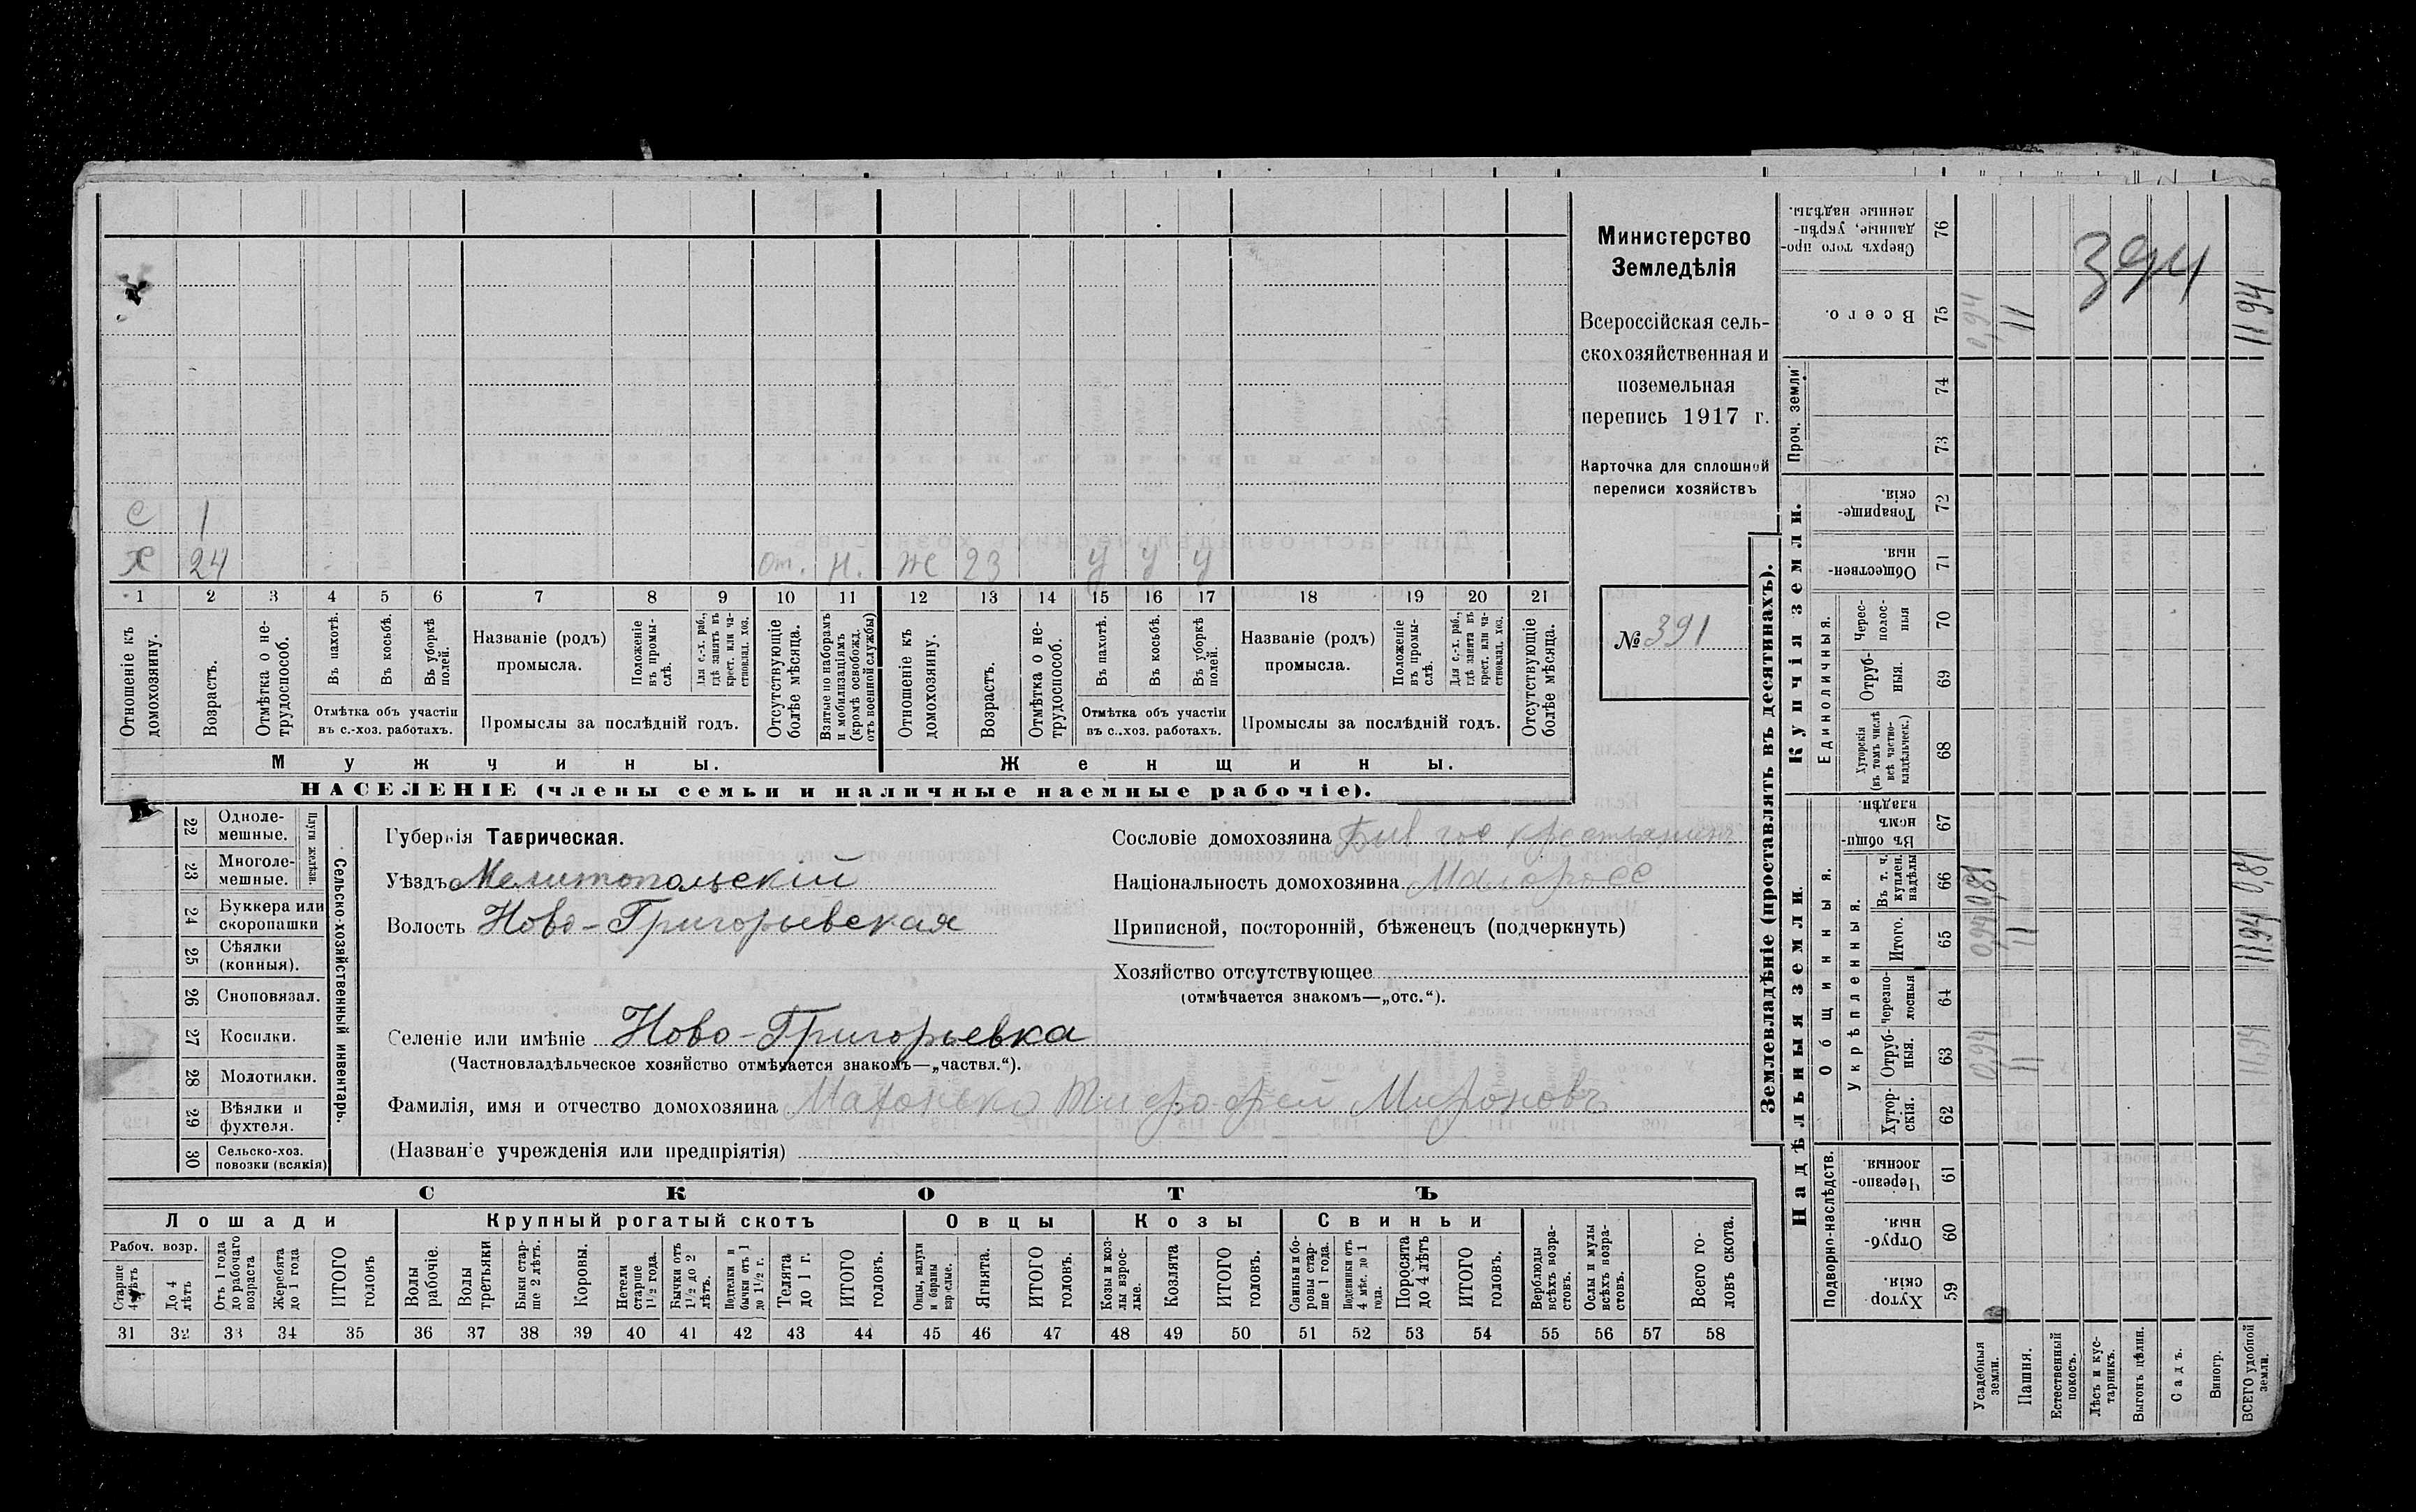 С 1
Х 24 От. Н. Ж 23 У У У
1 2 3 4 5 6 7 8 9 10 11 12 13 14 15 16 17 18 19 20 21
Отношеніе къ домохозяину.
Возрастъ.
Отмѣтка о не-
трудоспособ.
Въ пахотѣ.
Въ косьбѣ.
Въ уборкѣ полей.
Отмѣтка объ участіи
въ с.-хоз. работахъ.
Названіе (родъ)
промысла.
Положеніе въ промы-
слѣ.
Для с.-х. раб., гдѣ занятъ въ крест. или ча-
стновлад. хоз.
Промыслы за послѣдній годъ.
Отсутствующіе болѣе мѣсяца.
Взятые по наборамъ и мобилизаціямъ (кромѣ освобожд. отъ военной службы)
Отношеніе къ домохозяину.
Возрастъ.
Отмѣтка о не-
трудоспособ.
Въ пахотѣ.
Въ косьбѣ.
Въ уборкѣ полей.
Отмѣтка объ участіи
въ с.-хоз. работахъ.
Названіе (родъ)
промысла.
Положеніе въ промы-
слѣ.
Для с.-х. раб., гдѣ занята въ крест. или ча-
стновлад. хоз.
Промыслы за послѣдній годъ.
Отсутствующіе болѣе мѣсяца.
Мужчины.
Женщины.
НАСЕЛЕНІЕ (члены семьи и наличные наемные рабочіе).
Министерство
Земледѣлія
Всероссійская сель-
скохозяйственная и
поземельная
перепись 1917 г.
Карточка для сплошной
переписи хозяйствъ
№ 391
22 Одноле-
мешные.
23 Многоле-
мешные.
Плуги желѣзн.
24 Буккера или
скоропашки
25 Сѣялки
(конныя).
26 Сноповязал.
27 Косилки.
28 Молотилки.
29 Вѣялки и
фухтеля.
30 Сельско-хоз.
повозки (всякія)
Сельско-хозяйственный инвентарь.
Губернія Таврическая.
Уѣздъ Мелитопольскій
Волость Ново-Григорьевская
Селеніе или имѣніе Ново-Григорьевка
(Частновладѣльческое хозяйство отмѣчается знакомъ—„частвл.“).
Фамилія, имя и отчество домохозяина Тимофей Мироновъ
(Названіе учрежденія или предпріятія)
Сословіе домохозяина Быв гос крестьянинъ
Національность домохозяина Малоросс
Приписной, посторонній, бѣженецъ (подчеркнуть)
Хозяйство отсутствующее
(отмѣчается знакомъ—„отс.“).
СКОТЪ
Лошади
Крупный рогатый скотъ
Овцы
Козы
Свиньи
Рабоч. возр.
Старше 4 лѣтъ
До 4 лѣтъ
Отъ 1 года до рабочаго возраста
Жеребята до 1 года
ИТОГО головъ
Волы рабочіе.
Волы третьяки
Быки стар-
ше 2 лѣтъ.
Коровы.
Нетели старше 1½ года.
Бычки отъ 1½ до 2 лѣтъ.
Подтелки и бычки отъ 1 до 1½ г.
Телята до 1 г.
ИТОГО головъ.
Овцы, валухи и бараны взрослые.
Ягнята.
ИТОГО головъ.
Козы и коз-
лы взрос-
лые.
Козлята
ИТОГО головъ.
Свиньи и бо-
ровы стар-
ше 1 года.
Подсвинки отъ 4 мѣс. до 1 года.
Поросята до 4 лѣтъ
ИТОГО головъ.
Верблюды всѣхъ возра-
стовъ.
Ослы и мулы всѣхъ возра-
стовъ.
Всего го-
ловъ скота.
31 32 33 34 35 36 37 38 39 40 41 42 43 44 45 46 47 48 49 50 51 52 53 54 55 56 57 58
Землевладѣніе (проставлять въ десятинахъ).
Надѣльныя земли.
Купчія земли.
Проч. земли
Подворно-наслѣдств.
Общинныя.
Укрѣпленныя.
Единоличныя.
Сверхъ того про-
данные, укрѣп-
ленные надѣлы.
76
Всего.
75 0,94 11 11 94
394
74
73
Товарище-
скія.
72
Обществен-
ныя.
71
Черес-
полос-
ныя
70
Отруб-
ныя.
69
Хуторскія
(въ томъ числѣ
всѣ частно-
владѣльческ.)
68
Въ общи-
номъ
владѣн.
67
Въ т. ч.
куплен.
надѣлы
66 0,81 0,81
Итого.
65 0,94 11 11 94
Черезпо-
лосныя
64
Отруб-
ныя.
63 0,94 11 11,94
Хутор-
скія.
62
Черезпо-
лосныя.
61
Отруб-
ныя.
60
Хутор-
скія.
59
Усадебныя земли.
Пашня.
Естественный покосъ.
Лѣсъ и кус-
тарникъ.
Выгонъ цѣлин.
Садъ.
Виногр.
ВСЕГО удобной земли.